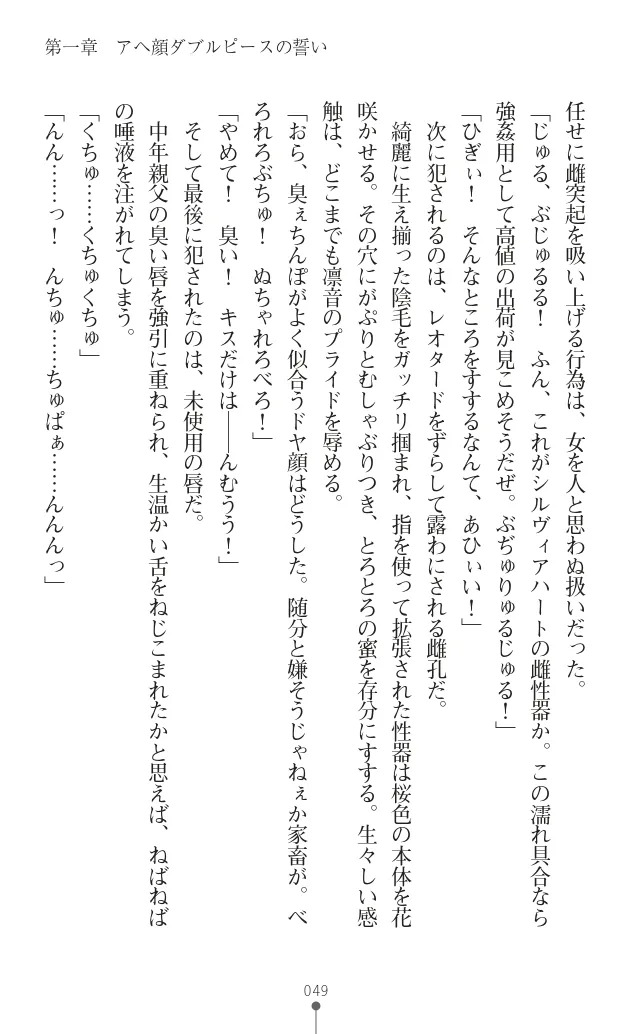 第一章　アヘ顔ダブルピースの誓い
任せに雌突起を吸い上げる行為は、女を人と思わぬ扱いだった。
「じゅる、ぶじゅるる！　ふん、これがシルヴィアハートの雌性器か。この濡れ具合なら
強姦用として高値の出荷が見こめそうだぜ。ぶぢゅりゅるじゅる！」
「ひぎぃ！　そんなところをすするなんて、あひぃい！」
次に犯されるのは、レオタードをずらして露わにされる雌孔だ。
綺麗に生え揃った陰毛をガッチリ掴まれ、指を使って拡張された性器は桜色の本体を花
咲かせる。その穴にがぷりとむしゃぶりつき、とろとろの蜜を存分にすする。生々しい感
触は、どこまでも凛音のプライドを辱める。
「おら、臭ぇちんぽがよく似合うドヤ顔はどうした。随分と嫌そうじゃねぇか家畜が。べ
ろれろぶちゅ！　ぬちゃれろべろ！」
「やめて！　臭い！　キスだけは――んむうう！」
そして最後に犯されたのは、未使用の唇だ。
中年親父の臭い唇を強引に重ねられ、生温かい舌をねじこまれたかと思えば、ねばねば
の唾液を注がれてしまう。
「くちゅ……くちゅくちゅ」
「んん……っ！　んちゅ……ちゅぱぁ……んんんっ」
049